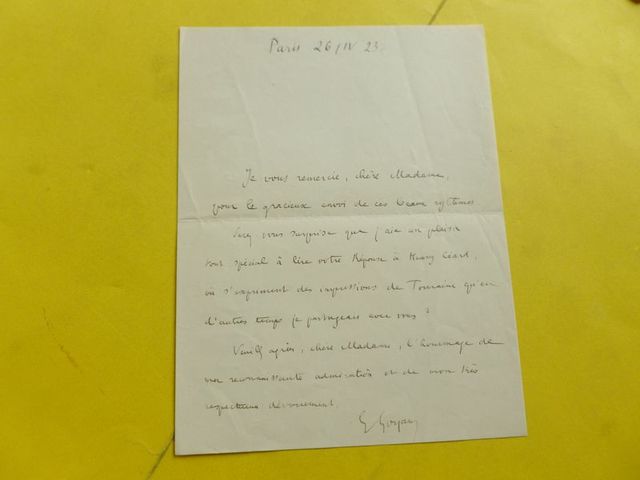 Paris 26/IV 23.
Je vous remercie, chère Madame,
pour le gracieux envoi de ces beaux rythmes
Serez vous surprise que j'aie un plaisir
tout spécial à lire votre Réponse à Henry Céard,
où s'expriment des impressions de Touraine qu'en
d'autres temps je partageais avec vous ?
Veuillez agréer, chère Madame, l'hommage de
ma reconnaissante admiration et de mon très
respectueux dévouement.
G Goyau